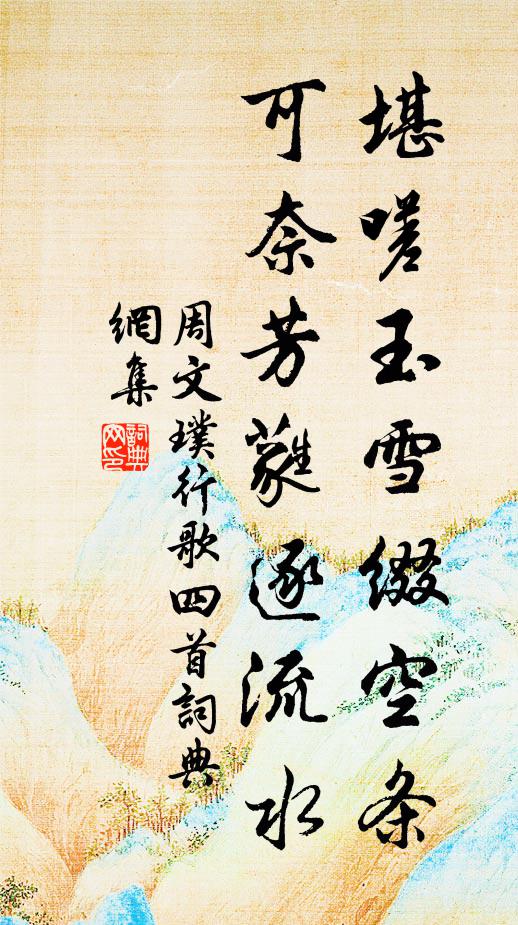 堪嗟玉雪缀空条
可奈芳蕤逐流水
周文璞行歌四首詞典
網集
詞典网印